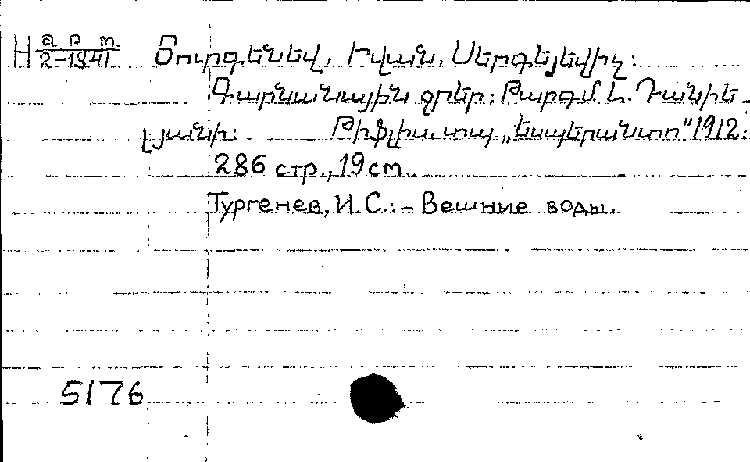 Н а р т.
2-1841
Տուրգենեվ, Իվան Սերգեյեվիչ:
Գարնանային ջրեր: Թարգմ. Լ. Դանիե-
լյանի: Թիֆլիս. տպ „Էսպերանտո“ 1912:
286 стр., 19 см.
Тургенев, И. С. - Вешние воды.
5176